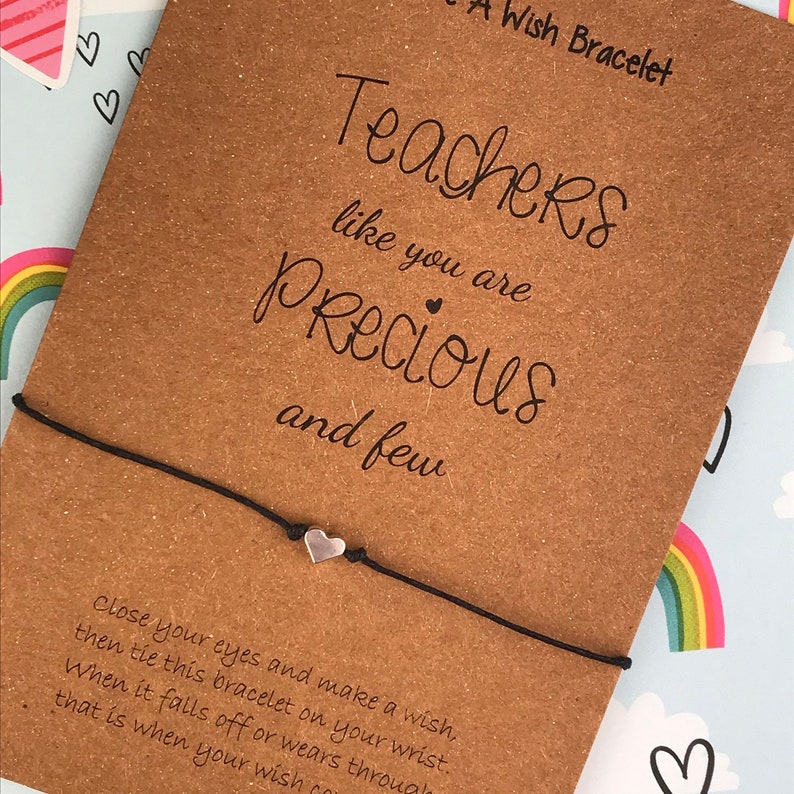 A Wish Bracelet
Teachers
like you are
Precious
and few
Close your eyes and make a wish,
then tie this bracelet on your wrist.
When it falls off or wears through
that is when your wish